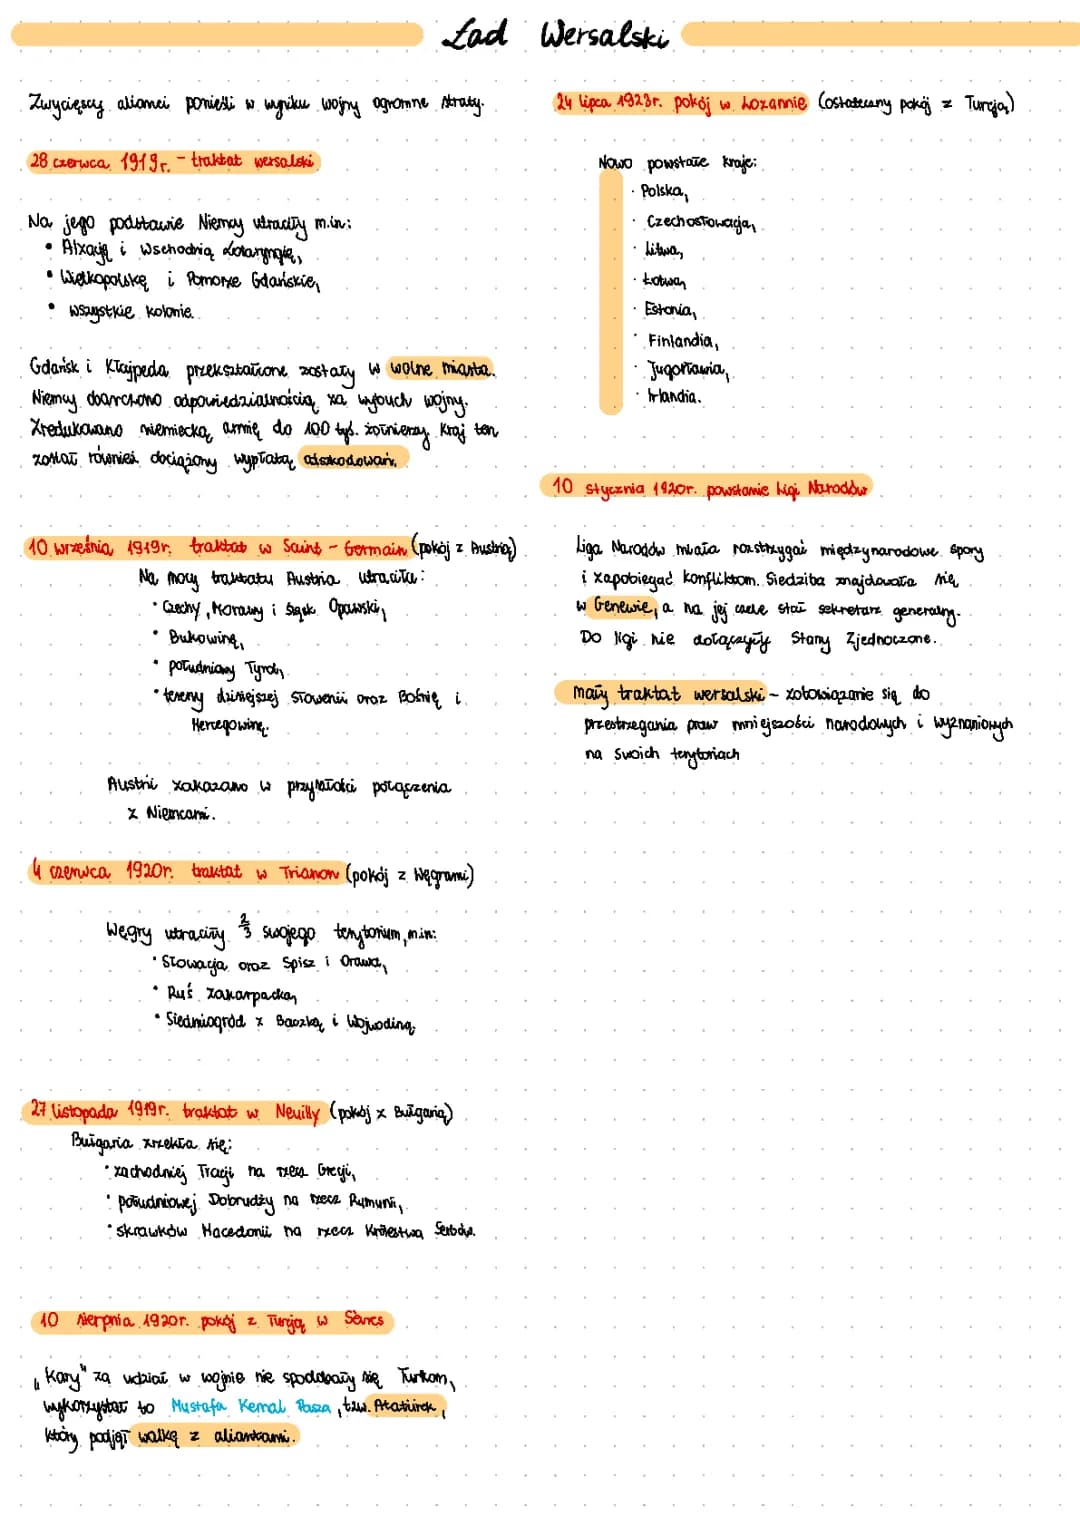 Ład Wersalski
Zwycięscy alianci ponieśli w wyniku wojny ogromne straty.
28 czerwca 1919r. - traktat wersalski
Na jego podstawie Niemcy utraciły m.in:
• Alzację i Wschodnią Lotaryngię,
• Wielkopolskę i Pomorze Gdańskie,
• wszystkie kolonie.
Gdańsk i Kłajpeda przekształcone zostały w wolne miasta.
Niemcy obarczono odpowiedzialnością za wybuch wojny.
Zredukowano niemiecką armię do 100 tyś. żołnierzy. Kraj ten
został również dociążony wypłatą odszkodowań.
10 września 1919r. traktat w Saint - Germain (pokój z Austrią)
Na mocy traktatu Austria utraciła:
• Czechy, Morawy i Śląsk Opawski,
• Bukowinę,
• południowy Tyrol,
• tereny dzisiejszej Słowenii oraz Bośnię i
Hercegowinę.
Austrii zakazano w przyszłości połączenia
z Niemcami.
4 czerwca 1920r. traktat w Trianon (pokój z Węgrami)
Węgry utraciły 2/3 swojego terytorium, m.in:
• Słowacja oraz Spisz i Orawa,
• Ruś Zakarpacka,
• Siedmiogród z Baczką i Wojwodiną.
27 listopada 1919r. traktat w Neuilly (pokój z Bułgarią)
Bułgaria zrzekła się:
• zachodniej Tracji na rzecz Grecji,
• południowej Dobrudży na rzecz Rumunii,
• skrawków Macedonii na rzecz Królestwa Serbów.
10 sierpnia 1920r. pokój z Turcją w Sèvres
„Kary" za udział w wojnie nie spodobały się Turkom,
wykorzystał to Mustafa Kemal Pasza, tzw. Atatürek,
który podjął walkę z aliantami.
24 lipca 1923r. pokój w Lozannie (ostateczny pokój z Turcją)
Nowo powstałe kraje:
· Polska,
· Czechosłowacja,
· Litwa,
· Łotwa,
· Estonia,
· Finlandia,
· Jugosławia,
· Irlandia.
10 stycznia 1920r. powstanie Ligi Narodów
Liga Narodów miała rozstrzygać międzynarodowe spory
i zapobiegać konfliktom. Siedziba znajdowała się
w Genewie, a na jej czele stał sekretarz generalny.
Do ligi nie dołączyły Stany Zjednoczone.
mały traktat wersalski - zobowiązanie się do
przestrzegania praw mniejszości narodowych i wyznaniowych
na swoich terytoriach